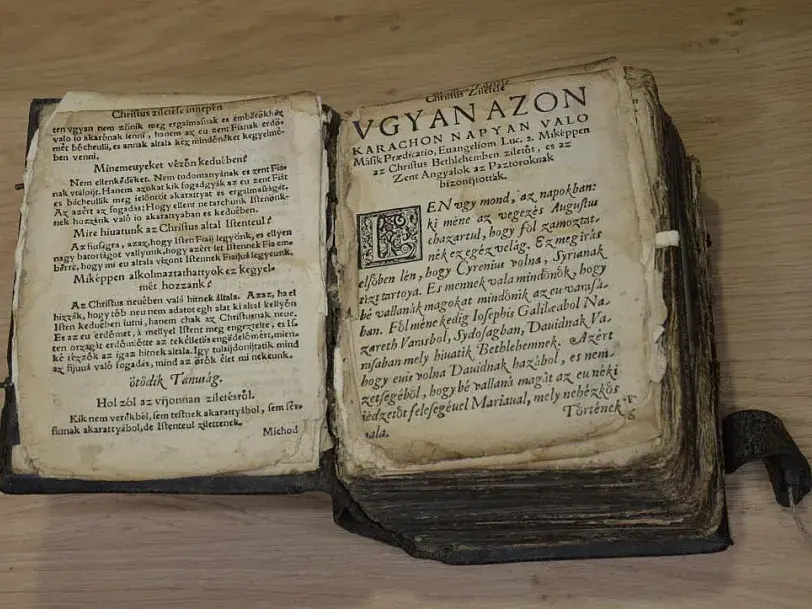 Christus ziletese innepen
ten vgyan nem zűnik meg ergalmasnak es embőrőkhez
való io akarónak lenni, hanem az eu zent Fianak erdő-
mét bőcheulli, es annak altala kéz mindőnőket kegyelmé-
ben venni.
Minemeuyeket vézőn keduében?
Nem ellenkedőket. Nem tudományának es zent Fiá-
nak vtálóit. Hanem azokat kik fogadgyák az eu zent Fiát
es bächeullik meg ielőntőt akarattyat es ergalmaságát.
Az azért az fogadás: Hogy ellent ne tarchunk Istenőnk-
nek hozzánk való io akarattyaban es keduében.
Mire hiuatunk az Christus altal Istenteul?
Az fiuságra, azaz, hogy Isten Fiaij legyűnk, es ellyen
nagy batorságot vallyunk, hogy azért lőt Istennek Fia em-
bärré, hogy mi eu altala vizont Istennek Fiaijuá legyeunk.
Miképpen alkolmaztathattyok ez kegyel-
mét hozzánk?
Az Christus neuében való hitnek általa. Azaz, ha el
hizzők, hogy tőb neu nem adatot egh alat ki altal kellyőn
Isten keduében iutni, hanem chak az Christusnak neue.
Es az eu erdőmét, á mellyel Istent meg engeztelte, es Is-
ten orzagát erdőmlőtte az tekélletős engődelmért, mien-
ké tézzők az igaz hitnek altala. Igy tulaijdonijtatik mind
az fijuuá való fogadás, mind az őrők élet mi nekeunk.
őtődik Tanusag.
Hol zól az vijonnan zíletésről.
Kik nem verőkből, sem testnek akarattyából, sem fér-
fiunak akarattyából, de Istenteul zilettenek.
Michod
Christus Zíletése
VGYAN AZON
KARACHON NAPYAN VALO
Másik Prædicatio, Euangeliom Luc. 2. Miképpen
az Christus Bethlehemben ziletőt, es az
Zent Angyalok az Paztoroknak
bizonijtottak.
LEN vgy mond, az napokban:
ki méne az vegezés Augustus
chazartul, hogy fől zamoztat-
nék ez egéz velág. Ez meg irás
elsőben lén, hogy Cyrenius volna, Syrianak
tiztartoya. Es mennek vala mindőnők, hogy
bé vallanák magokat mindőnik az eu varasá-
ban. Főlméne kedig Iosephis Galilæabol Na-
zareth Varasbol, Sydosagban, Dauidnak Va-
rasaban mely hiuatik Bethlehemnek. Azért
hogy euis volna Dauidnak hazából, es nem-
zetségéből, hogy bé vallaná magát az eu néki
iedzetőt feleségéuel Mariaual, mely nehézkős
vala.
Történek